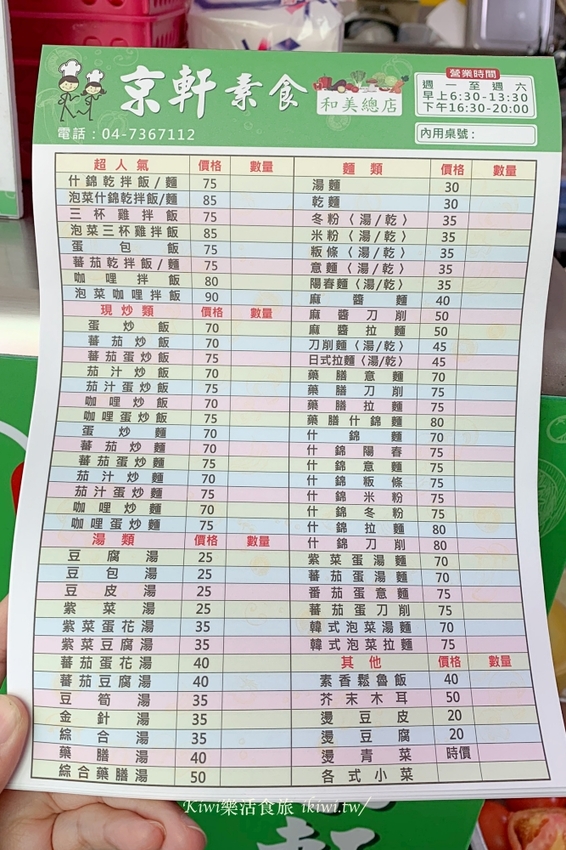 京軒素食
和美總店
電話：04-7367112
營業時間
週一至週六
早上6:30-13:30
下午16:30-20:00
內用桌號：
超人氣 價格 數量
什錦乾拌飯/麵 75
泡菜什錦乾拌飯/麵 85
三杯雞拌飯 75
泡菜三杯雞拌飯 85
蛋包飯 75
蕃茄乾拌飯/麵 75
咖哩拌飯 80
泡菜咖哩拌飯 90
現炒類 價格 數量
蛋炒飯 70
蕃茄炒飯 70
蕃茄蛋炒飯 75
茄汁炒飯 70
茄汁蛋炒飯 75
咖哩炒飯 70
咖哩蛋炒飯 75
蛋炒麵 70
蕃茄炒麵 70
蕃茄蛋炒麵 75
茄汁炒麵 70
茄汁蛋炒麵 75
咖哩炒麵 70
咖哩蛋炒麵 75
湯類 價格 數量
豆腐湯 25
豆包湯 25
豆皮湯 25
紫菜湯 25
紫菜蛋花湯 35
紫菜豆腐湯 35
蕃茄蛋花湯 40
蕃茄豆腐湯 40
豆筍湯 35
金針湯 35
綜合湯 35
藥膳湯 40
綜合藥膳湯 50
麵類 價格 數量
湯麵 30
乾麵 30
冬粉〈湯/乾〉 35
米粉〈湯/乾〉 35
粄條〈湯/乾〉 35
意麵〈湯/乾〉 35
陽春麵〈湯/乾〉 35
麻醬麵 40
麻醬刀削 50
麻醬拉麵 50
刀削麵〈湯/乾〉 45
日式拉麵〈湯/乾〉 45
藥膳意麵 70
藥膳刀削 75
藥膳拉麵 75
藥膳什錦麵 80
什錦麵 70
什錦陽春 75
什錦意麵 75
什錦粄條 75
什錦米粉 75
什錦冬粉 75
什錦拉麵 80
什錦刀削 80
紫菜蛋湯麵 70
蕃茄蛋湯麵 70
番茄蛋意麵 75
蕃茄蛋刀削 75
韓式泡菜湯麵 70
韓式泡菜拉麵 75
其他 價格 數量
素香鬆魯飯 40
芥末木耳 50
燙豆皮 20
燙豆腐 20
燙青菜 時價
各式小菜
Kiwi樂活食旅 ikiwi.tw/